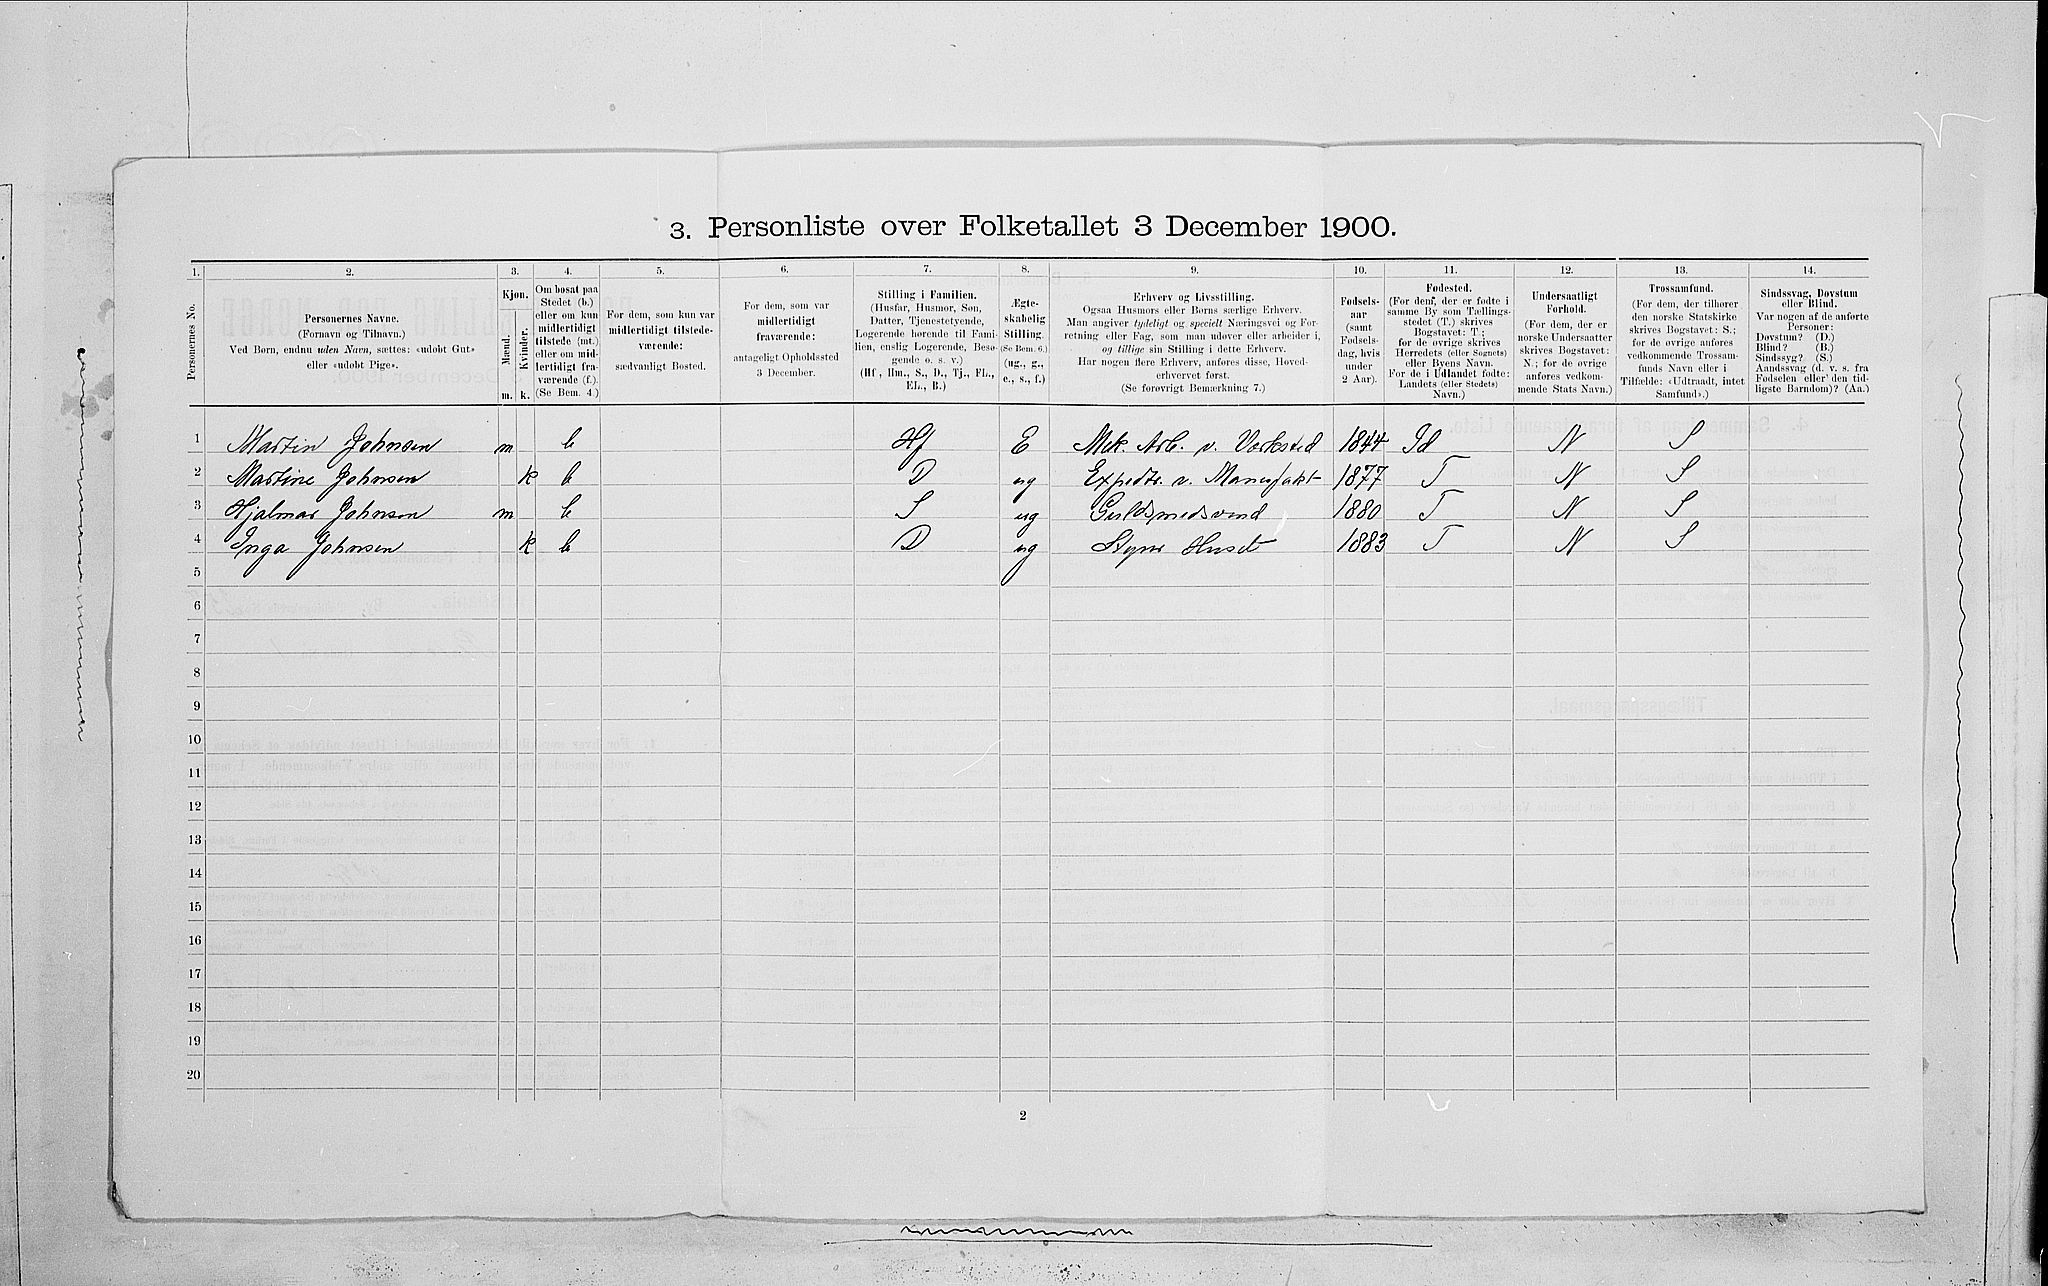 3. Personliste over Folketallet 3 December 1900.
1. 2. 3. 4. 5. 6. 7. 8. 9. 10. 11. 12. 13. 14.
Personernes No.
Personernes Navne.
(Fornavn og Tilnavn.)
Ved Børn, endnu uden Navn, sættes: «udøbt Gut»
eller «udøbt Pige».
Kjøn.
Mænd.
Kvinder.
m. k.
Om bosat paa
Stedet (b.)
eller om kun
midlertidigt
tilstede (mt.)
eller om mid-
lertidigt fra-
værende (f.).
(Se Bem. 4.)
For dem, som kun var
midlertidigt tilstede-
værende:
sædvanligt Bosted.
For dem, som var
midlertidigt
fraværende:
antageligt Opholdssted
3 December.
Stilling i Familien.
(Husfar, Husmor, Søn,
Datter, Tjenestetyende,
Logerende hørende til Fami-
lien, enslig Logerende, Besø-
gende o. s. v.)
(Hf., Hm., S., D., Tj., FL.,
EL., B.)
Ægte-
skabelig
Stilling.
(Se Bem. 6.)
(ug., g.,
e., s., f.)
Erhverv og Livsstilling.
Ogsaa Husmors eller Børns særlige Erhverv.
Man angiver tydeligt og specielt Næringsvei og For-
retning eller Fag, som man udøver eller arbeider i,
og tillige sin Stilling i dette Erhverv.
Har nogen flere Erhverv, anføres disse, Hoved-
erhvervet først.
(Se forøvrigt Bemærkning 7.)
Fødsels-
aar
(samt
Fødsels-
dag, hvis
under
2 Aar).
Fødested.
(For dem, der er fødte i
samme By som Tællings-
stedet (T.) skrives
Bogstavet: T.;
for de øvrige skrives
Herredets (eller Sognets)
eller Byens Navn.
For de i Udlandet fødte:
Landets (eller Stedets)
Navn.)
Undersaatligt
Forhold.
(For dem, der er
norske Undersaatter
skrives Bogstavet:
N.; for de øvrige
anføres vedkom-
mende Stats Navn.)
Trossamfund.
(For dem, der tilhører
den norske Statskirke
skrives Bogstavet: S.;
for de øvrige anføres
vedkommende Trossam-
funds Navn eller i
Tilfælde: «Udtraadt, intet
Samfund».)
Sindssvag, Døvstum
eller Blind.
Var nogen af de anførte
Personer:
Døvstum? (D.)
Blind? (B.)
Sindssyg? (S.)
Aandssvag (d. v. s. fra
Fødselen eller den tid-
ligste Barndom)? (Aa.)
1 Martin Johnsen m b Hf E Mek. Arb. v. Værksted 1844 Id N S
2 Martine Johnsen k b D ug Expedtr. v. Manufakt 1877 T N S
3 Hjalmar Johnsen m b S ug Guldsmedsvend 1880 T N S
4 Inga Johnsen k b D ug Styrer Huset 1883 T N S
5
6
7
8
9
10
11
12
13
14
15
16
17
18
19
20
2